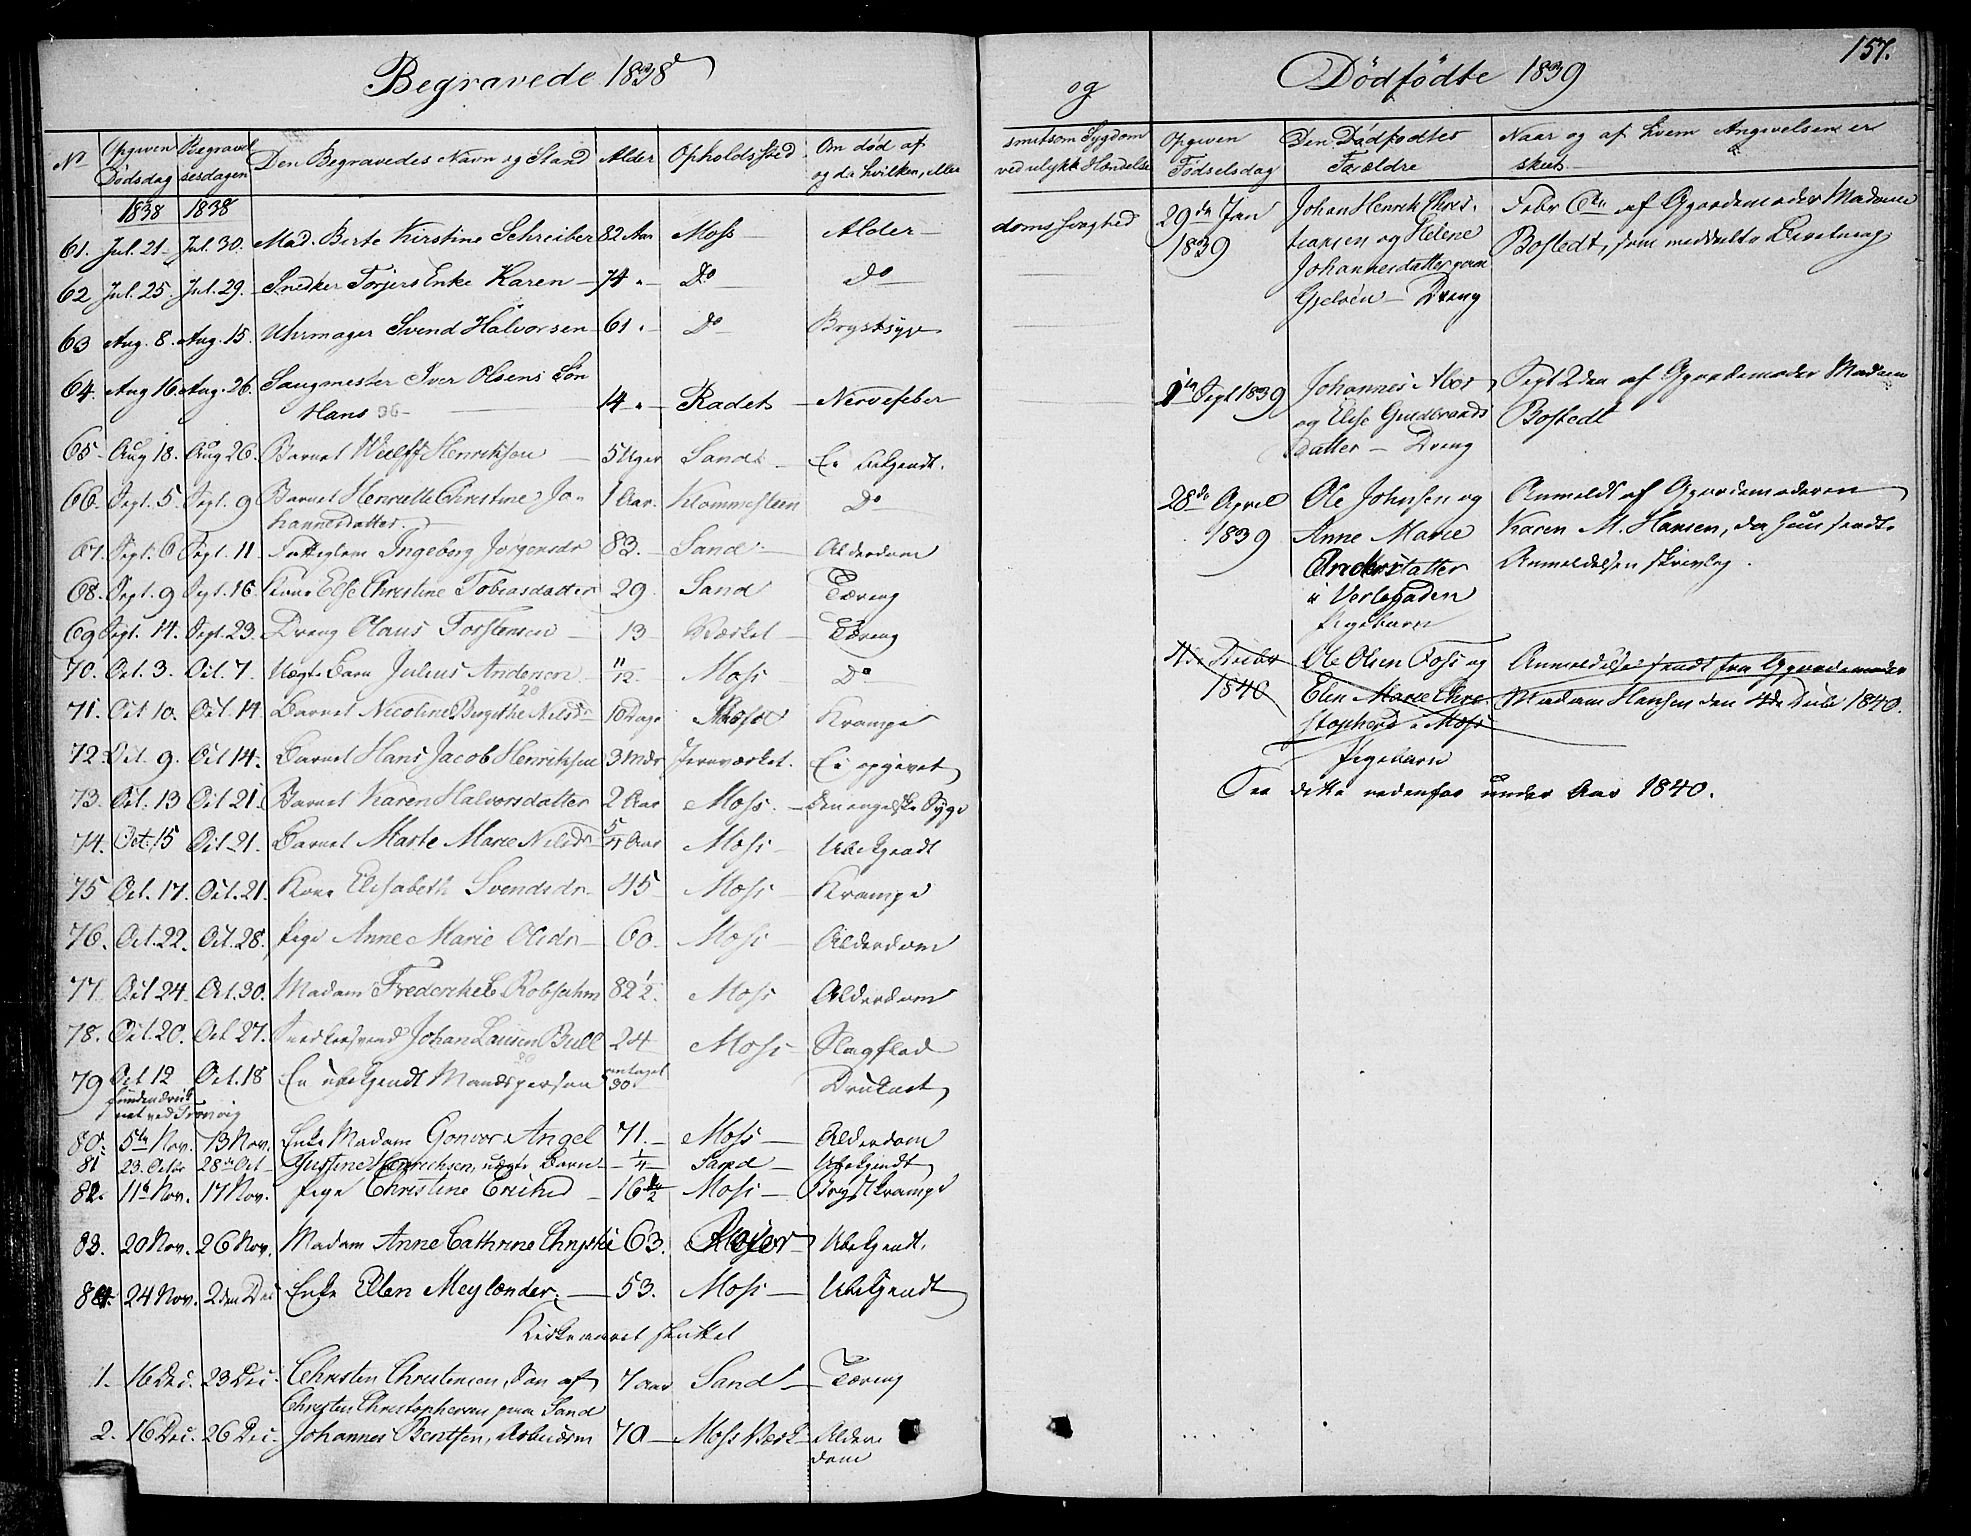 Begravede 1838
No
Opgiven Dødsdag
Begravelsesdagen
Den Begravedes Navn og Stand
Alder
Opholdssted
Om død af og da hvilken, eller
1838 1838
61. Jul. 21 Jul. 30. Mad. Berte Kirstine Schreiber 82 Aar Moss Alder
62 Jul. 25. Jul. 29. Snedker Torjers Enke Karen 74 " Do Do
63 Aug. 8. Aug. 15. Uhrmager Svend Halvorsen 61 " Do Brystsyge
64. Aug 16. Aug. 26. Saugmester Iver Olsens Søn
Hans 14 " Radets Nervefeber
65. Aug 18. Aug 26. Barnet Wulff Henriksen 5 Uger Sand Ei bekjendt.
66. Sept. 5. Sept. 9 Barnet Henriette Christine Jo-
hannesdatter. 1 Aar. Klommesteen Do
67. Sept. 6 Sept. 11 Fattiglem Ingeborg Jørgensdr 83. Sand Alderdom
68. Sept. 9 Sept. 16. Kone Else Christine Tobiasdatter 29. Sand Tæring
69 Sept. 14. Sept. 23. Dreng Claus Torstensen 13 Værket Tæring
70. Oct. 3. Oct. 7. Uægte Barn Julius Andersen 11/12. Moss Do
71. Oct 10. Oct. 14 Barnet Nicoline Birgithe Nilsdr 10 Dage Krampe
72. Oct. 9. Oct 14. Barnet Hans Jacob Henriksen 3 Mdr Jernværket. Ei opgivet
73. Oct. 13 Oct 21. Barnet Karen Halvorsdatter 2 Aar Moss. Den engelske Syge
74. Oct. 15 Oct 21. Barnet Marte Marie Nilsdr 5/4 Aar Moss Ubekjendt
75 Oct. 17. Oct. 21. Kone Elisabeth Svendsdr 45 Moss Krampe
76. Oct. 22. Oct. 28. Pige Anne Marie Olsdr 60 Moss Alderdom
77. Oct 24. Oct. 30. Madam Frederikke Robsahm 82 1/2. Moss Alderdom
78. Oct. 20. Oct 27. Snedkersvend Johan Lausen Bull 24 Moss Slagflod
79 Oct 12 Oct. 18 En ubekjendt Mandsperson antaget 30 Druknet
funden druk
net ved Tronvig
80. 5te Nov. 13 Nov. Enke Madam Gonvor Angel 71. Moss Alderdom
81 23. Octbr 28de Oct Justine Henrichsen, uægte Barn 1/4 Sand Ubekjendt
82. 11te Nov. 17 Nov. Pige Christine Ericksd 16 1/2 Moss Brystkrampe
83. 20 Nov. 26 Nov. Madam Anne Cathrine Chrystie 63. Ubekjendt.
84. 24 Nov. 2den Dec Enke Ellen Meylænder. 53. Moss Ubekjendt
Kirkeaaret sluttet
1. 16 Dec. 23 Dec. Christen Christensen, Søn af 7 aar Sand Tæring
Christen Christophersen paa Sand
2. 16 Dec. 26 Dec. Johannes Bentsen, 70 Moss Værk Alder
dom
og
Dødfødte 1839
157.
smitsom Sygdom
ved ulykk. Hændelse
Opgiven
Fødselsdag
Den Dødfødtes
Forældre
Naar og af hvem Angivelsen er
skeet.
doms svaghed
29de Jan
1839
Johan Henrik Chris-
tiansen og Helene
Johannesdatter paa
Gjelöen - Dreng
Febr 6te af Gjordemoder Madame
Bostedt, som meddeelte Beretning
1ste Sept 1839
Johannes Moss
og Else Gudbrands
Datter - Dreng
Sept 2den af Gjordemoder Madam
Bostedt
28de April
1839
Ole Johnsen og
Anne Marie
Andersdatter
i Verlegaden
Pigebarn
Anmeldt af Gjordemoderen
Karen M. Hansen, da hun sendte
Anmeldelsen skrivtlig.
1840
Ole Olsen Foss og
Elen Marie Chri-
stophersd i Moss
Pigebarn
Anmeldelse sendt fra Gjordemoder
Madam Hansen den 4de 1840.
See dette nedenfor under Aar 1840.